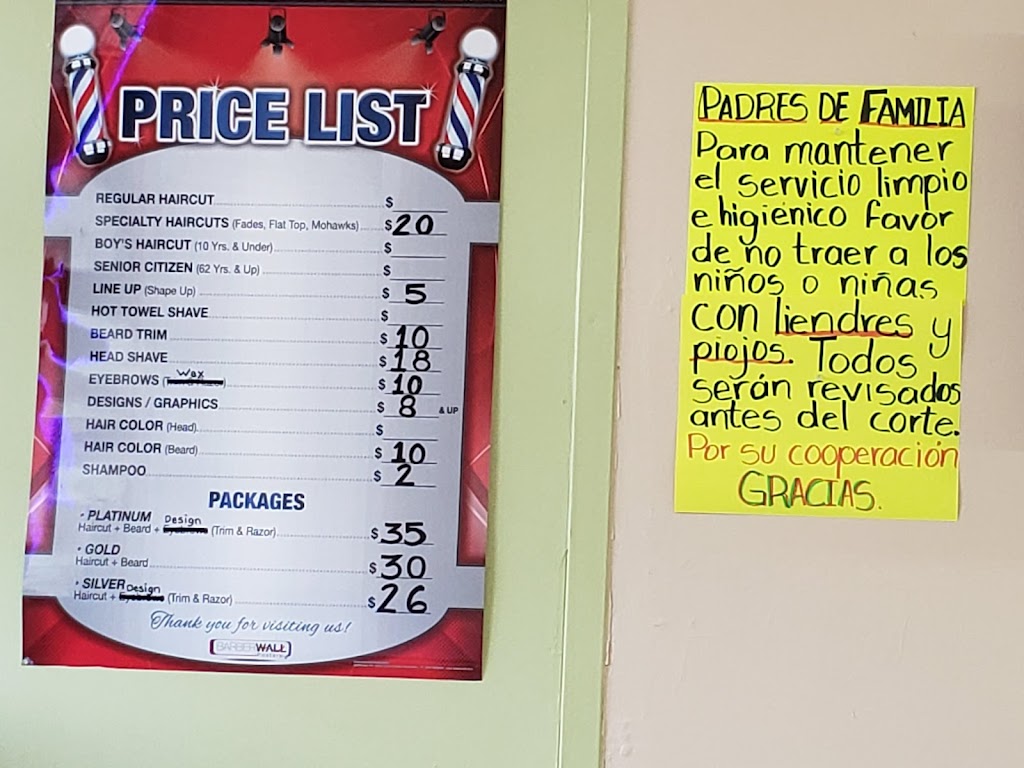 PRICE LIST
REGULAR HAIRCUT $
SPECIALTY HAIRCUTS (Fades, Flat Top, Mohawks) $20
BOY'S HAIRCUT (10 Yrs. & Under) $
SENIOR CITIZEN (62 Yrs. & Up) $
LINE UP (Shape Up) $ 5
HOT TOWEL SHAVE $
BEARD TRIM $ 10
HEAD SHAVE $ 18
EYEBROWS (Wax) $ 10
DESIGNS / GRAPHICS $ 8 & UP
HAIR COLOR (Head) $
HAIR COLOR (Beard) $ 10
SHAMPOO $ 2
PACKAGES
• PLATINUM
Haircut + Beard + Design (Trim & Razor) $35
• GOLD
Haircut + Beard $30
• SILVER
Haircut + Design (Trim & Razor) $26
Thank you for visiting us!
BARBERWALL
PADRES DE FAMILIA
Para mantener
el servicio limpio
e higiénico favor
de no traer a los
niños o niñas
con liendres y
piojos. Todos
serán revisados
antes del corte.
Por su cooperación
GRACIAS.